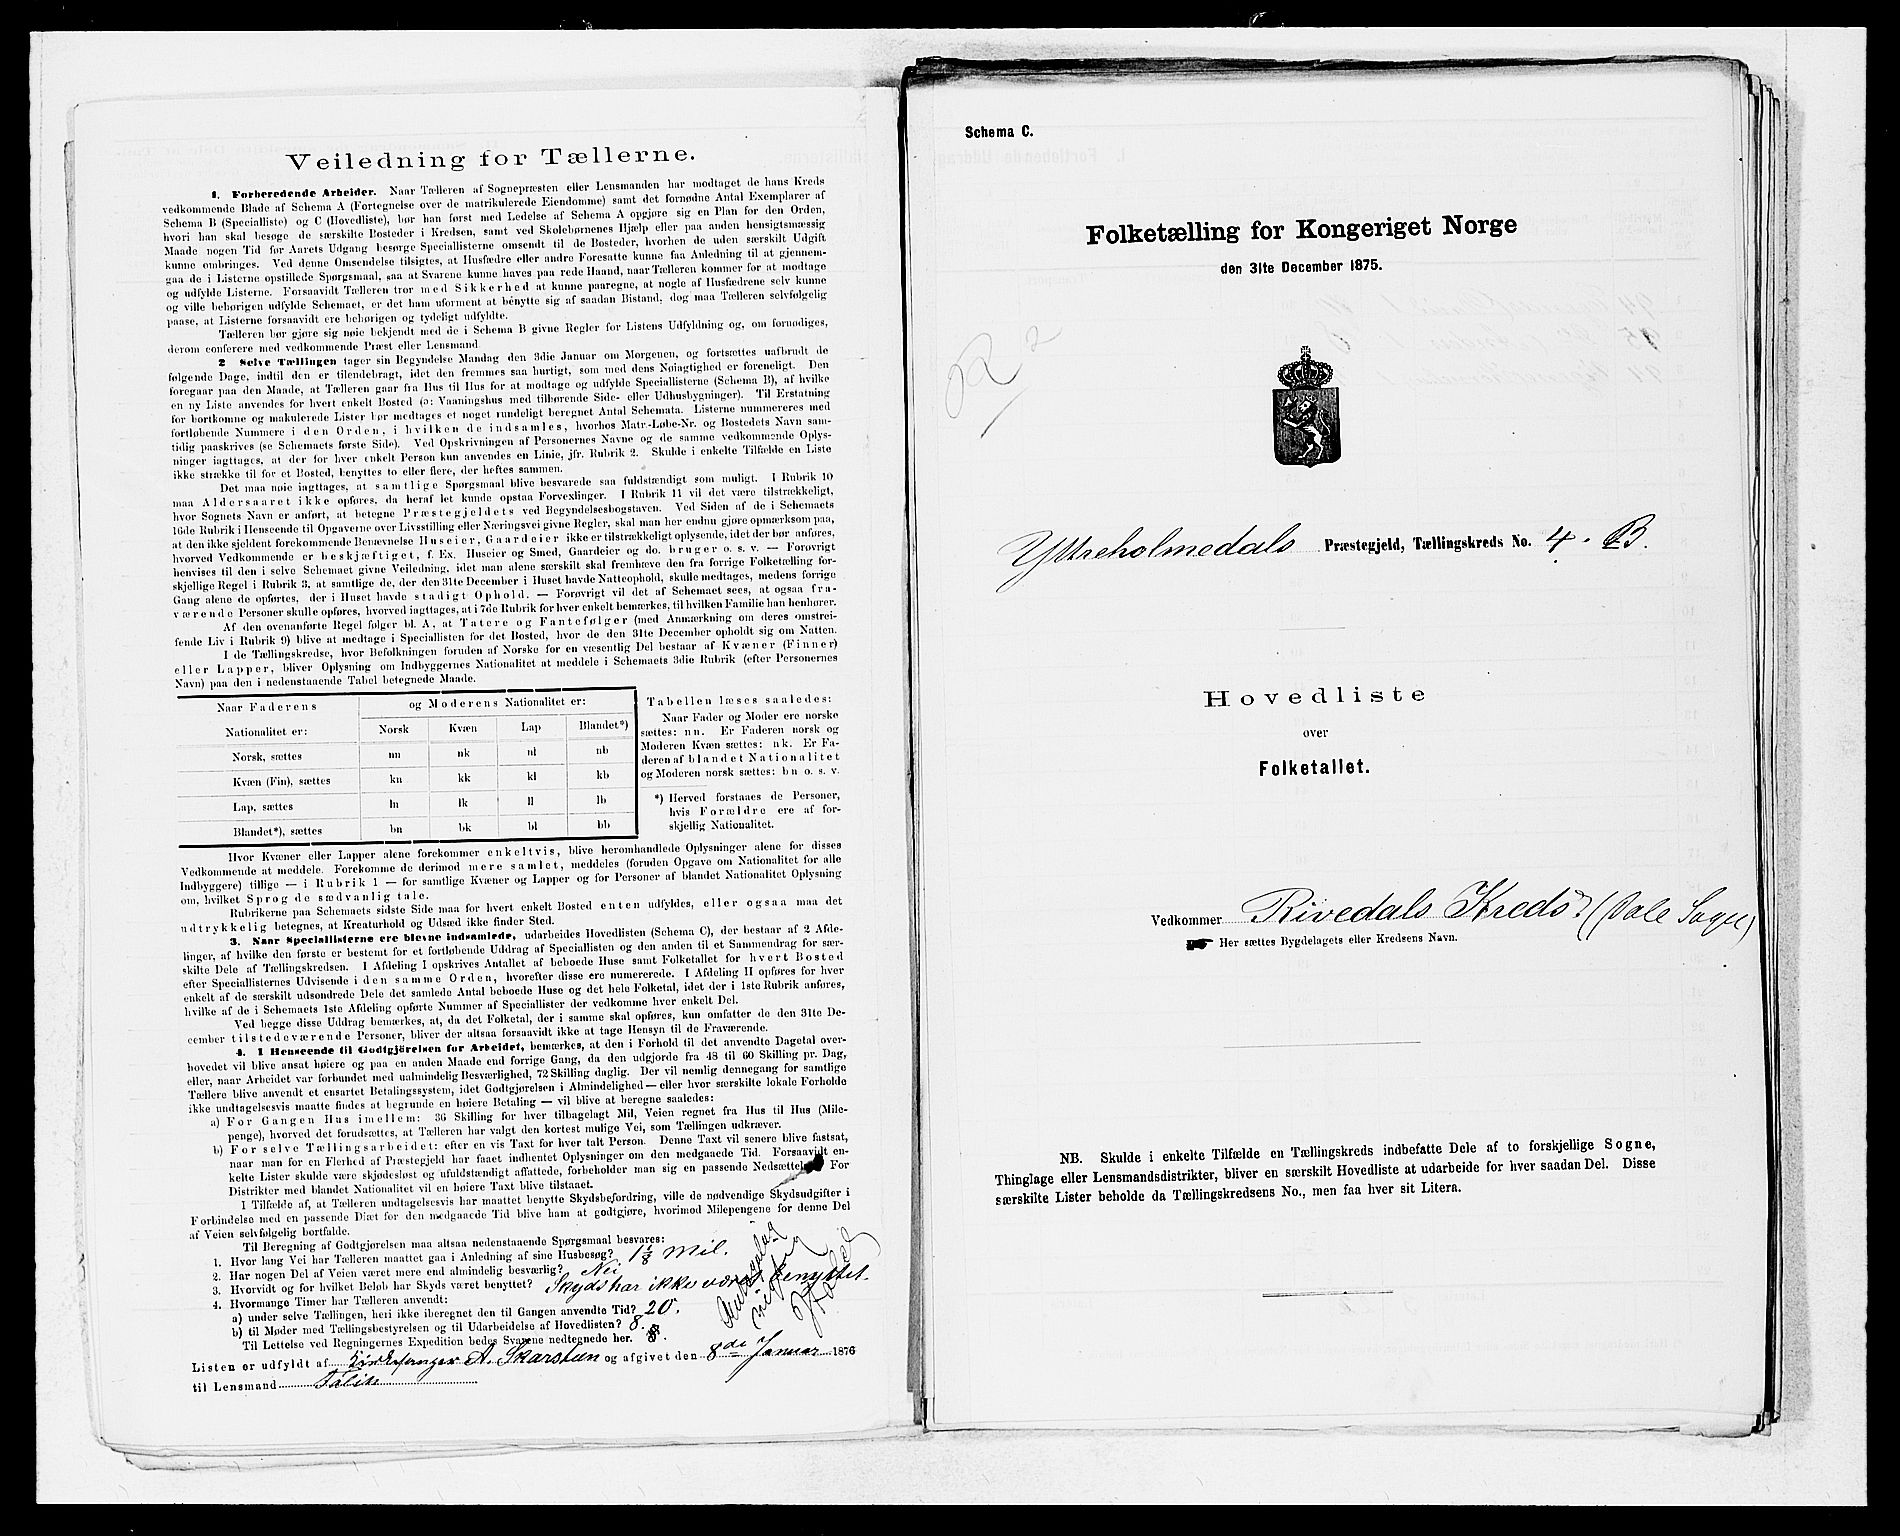 Veiledning for Tællerne.
1. Forberedende Arbeider. Naar Tælleren af Sognepræsten eller Lensmanden har modtaget de hans Kreds
vedkommende Blade af Schema A (Fortegnelse over de matrikulerede Eiendomme) samt det fornødne Antal Exemplarer af
Schema B (Specialliste) og C (Hovedliste), bør han først med Ledelse af Schema A opgjøre sig en Plan for den Orden,
hvori han skal besøge de særskilte Bosteder i Kredsen, samt ved Skolebørnenes Hjælp eller paa anden hensigtsmæssig
Maade nogen Tid før Aarets Udgang besørge Speciallisterne omsendt til de Bosteder, hvorhen de uden særskilt Udgift
kunne ombringes. Ved denne Omsendelse tilsigtes, at Husfædre eller andre Foresatte kunne faa Anledning til at gjennem-
gaa de i Listerne opstillede Spørgsmaal, saa at Svarene kunne haves paa rede Haand, naar Tælleren kommer for at modtage
og udfylde Listerne. Forsaavidt Tælleren tror med Sikkerhed at kunne paaregne, at nogle af Husfædrene selv kunne
og ville behørigen udfylde Schemaet, er det ham uforment at benytte sig af saadan Bistand, dog maa Tælleren selvfølgelig
paase, at Listerne forsaavidt ere behørigen og tydeligt udfyldte.
Tælleren bør gjøre sig nøie bekjendt med de i Schema B givne Regler for Listens Udfyldning og, om fornødiges,
derom conferere med vedkommende Præst eller Lensmand
2 Selve Tællingen tager sin Begyndelse Mandag den 3die Januar om Morgenen, og fortsættes uafbrudt de
følgende Dage, indtil den er tilendebragt, idet den fremmes saa hurtigt, som med dens Nøiagtighed er foreneligt. Den
foregaar paa den Maade, at Tælleren gaar fra Hus til Hus for at modtage og udfylde Speciallisterne (Schema B), af hvilke
en ny Liste anvendes for hvert enkelt Bosted (ɔ: Vaaningshus med tilhørende Side- eller Udhusbygninger). Til Erstatning
for bortkomne og makulerede Lister bør medtages et noget rundeligt beregnet Antal Schemata. Listerne nummereres med
fortløbende Nummere i den Orden, i hvilken de indsamles, hvorhos Matr.-Løbe-Nr. og Bostedets Navn sam-
tidig paaskrives (se Schemaets første Side). Ved Opskrivningen af Personernes Navne og de samme vedkommende Oplys-
ninger iagttages, at der for hver enkelt Person kun anvendes en Linie, jfr. Rubrik 2. Skulde i enkelte Tilfælde en Liste
ikke strække til for et Bosted, benyttes to eller flere, der heftes sammen.
Det maa nøie iagttages, at samtlige Spørgsmaal blive besvarede saa fuldstændigt som muligt. I Rubrik 10
maa Aldersaaret ikke opføres, da heraf let kunde opstaa Forvexlinger. I Rubrik 11 vil det være tilstrækkeligt,
hvor Sognets Navn er anført, at betegne Præstegjeldets ved Begyndelsesbogstaven. Ved Siden af de i Schemaets
16de Rubrik i Henseende til Opgaverne over Livsstilling eller Næringsvei givne Regler, skal man her endnu gjøre opmærksom paa,
at den ikke sjeldent forekommende Benævnelse Huseier, Gaardeier ikke er tilstrækkeligt oplysende, idet der bør anføres,
hvorved Vedkommende er beskjæftiget, f. Ex. Huseier og Smed, Gaardeier og do. bruger o. s. v. — Forøvrigt
henvises til den i selve Schemaet givne Veiledning, idet man alene særskilt skal fremhæve den fra forrige Folketælling for-
skjellige Regel i Rubrik 3, at samtlige de, der den 31te December i Huset havde Natteophold, skulle medtages, medens forrige
Gang alene de opførtes, der i Huset havde stadigt Ophold. — Forøvrigt vil det af Schemaet sees, at ogsaa fra-
værende Personer skulle opføres, hvorved iagttages, at i 7de Rubrik for hver enkelt bemærkes, til hvilken Familie han henhører.
Af den ovenanførte Regel følger bl. A, at Tatere og Fantefølger (med Anmærkning om deres omstrei-
fende Liv i Rubrik 9) blive at medtage i Speciallisten for det Bosted, hvor de den 31te December opholdt sig om Natten.
I de Tællingskredse, hvor Befolkningen foruden af Norske for en væsentlig Del bestaar af Kvæner (Finner)
eller Lapper, bliver Oplysning om Indbyggernes Nationalitet at meddele i Schemaets 3die Rubrik (efter Personernes
Navn) paa den i nedenstaaende Tabel betegnede Maade.
Naar Faderens og Moderens Nationalitet er:
Nationalitet er: Norsk Kvæn Lap Blandet*)
Norsk, sættes nn nk nl nb
Kvæn (Fin), sættes kn kk kl kb
Lap, sættes ln lk ll lb
Blandet*), sættes bn bk bl bb
Tabellen læses saaledes:
Naar Fader og Moder ere norske
sættes: nn. Er Faderen norsk og
Moderen Kvæn sættes: nk. Er Fa-
deren af blandet Nationalitet
og Moderen norsk sættes: bn o. s. v.
*) Herved forstaaes de Personer,
hvis Forældre ere af for-
skjellig Nationalitet.
Hvor Kvæner eller Lapper alene forekommer enkeltvis, blive heromhandlede Oplysninger alene for disses
Vedkommende at meddele. Forekomme de derimod mere samlet, meddeles (foruden Opgave om Nationalitet for alle
Indbyggere) tillige — i Rubrik 1 — for samtlige Kvæner og Lapper og for Personer af blandet Nationalitet Oplysning
om, hvilket Sprog de sædvanlig tale.
Rubrikerne paa Schemaets sidste Side maa for hvert enkelt Bosted enten udfyldes, eller ogsaa maa det
udtrykkelig betegnes, at Kreaturhold og Udsæd ikke finder Sted.
3. Naar Speciallisterne ere blevne indsamlede, udarbeides Hovedlisten (Schema C), der bestaar af 2 Afde-
linger, af hvilke den første er bestemt for et fortløbende Uddrag af Speciallisten og den anden til et Sammendrag for sær-
skilte Dele af Tællingskredsen. I Afdeling I opskrives Antallet af beboede Huse samt Folketallet for hvert Bosted
efter Speciallisternes Udvisende i den samme Orden, hvorefter disse ere numererede. I Afdeling II opføres for hver
enkelt af de særskilt udsondrede Dele det samlede Antal beboede Huse og det hele Folketal, idet der i 1ste Rubrik anføres,
hvilke af de i Schemaets 1ste Afdeling opførte Nummer af Speciallister der vedkomme hver enkelt Del.
Ved begge disse Uddrag bemærkes, at, da det Folketal, der i samme skal opføres, kun omfatter de den 31te De-
cember tilstedeværende Personer, bliver der altsaa forsaavidt ikke at tage Hensyn til de Fraværende.
4. I Henseende til Godtgjörelsen for Arbeidet, bemærkes, at den i Forhold til det anvendte Dagetal over-
hovedet vil blive ansat høiere og paa en anden Maade end forrige Gang, da den udgjorde fra 48 til 60 Skilling pr. Dag,
eller, naar Arbeidet var forbundet med ualmindelig Besværlighed, 72 Skilling daglig. Der vil nemlig dennegang for samtlige
Tællere blive anvendt et ensartet Betalingssystem, idet Godtgjörelsen i Almindelighed — eller hvor særskilte lokale Forholde
ikke undtagelsesvis maatte findes at begrunde en høiere Betaling — vil blive at beregne saaledes:
a) For Gangen Hus imellem: 36 Skilling for hver tilbagelagt Mil, Veien regnet fra Hus til Hus (Mile-
penge), hvorved det forudsættes, at Tælleren har valgt den kortest mulige Vei, som Tællingen udkræver.
b) For selve Tællingsarbeidet: efter en vis Taxt for hver talt Person. Denne Taxt vil senere blive fastsat,
naar man for en Flerhed af Præstegjeld har faaet indhentet Oplysninger om den medgaaede Tid. Forsaavidt en-
kelte Lister skulde være skjødesløst og ufuldstændigt affattede, forbeholder man sig en passende Nedsættelse. For
Distrikter med blandet Nationalitet vil en høiere Taxt blive tilstaaet.
I Tilfælde af, at Tælleren undtagelsesvis har maattet benytte Skydsbefordring, ville de nødvendige Skydsudgifter i
Forbindelse med en passende Diæt for den medgaaede Tid blive ham at godtgjøre, hvorimod Milepengene for denne Del
af Veien selvfølgelig bortfalde.
Til Beregning af Godtgjørelsen maa altsaa nedenstaaende Spørgsmaal besvares:
1. Hvor lang Vei har Tælleren maattet gaa i Anledning af sine Husbesøg? 1 1/8 Mil.
2. Har nogen Del af Veien været mere end almindelig besværlig? Nei
3. Hvorvidt og for hvilket Beløb har Skyds været benyttet? Skyds har ikke været benyttet.
4. Hvormange Timer har Tælleren anvendt:
a) under selve Tællingen, heri ikke iberegnet den til Gangen anvendte Tid? 20.
b) til Møder med Tællingsbestyrelsen og til Udarbeidelse af Hovedlisten? 8.
Til Lettelse ved Regningernes Expedition bedes Svarene nedtegnede her.
Listen er udfyldt af Kirkesanger A. Skarsteen og afgivet den 8de Januar 1876
til Lensmand
Schema C.
Folketælling for Kongeriget Norge
den 31te December 1875.
R 2
Yttreholmedals Præstegjeld, Tællingskreds No. 4. B.
Hovedliste
over
Folketallet.
Vedkommer Rivedals Kreds (Dale Sogn)
Her sættes Bygdelagets eller Kredsens Navn.
NB. Skulde i enkelte Tilfælde en Tællingskreds indbefatte Dele af to forskjellige Sogne,
Thinglage eller Lensmandsdistrikter, bliver en særskilt Hovedliste at udarbeide for hver saadan Del. Disse
særskilte Lister beholde da Tællingskredsens No., men faa hver sit Litera.